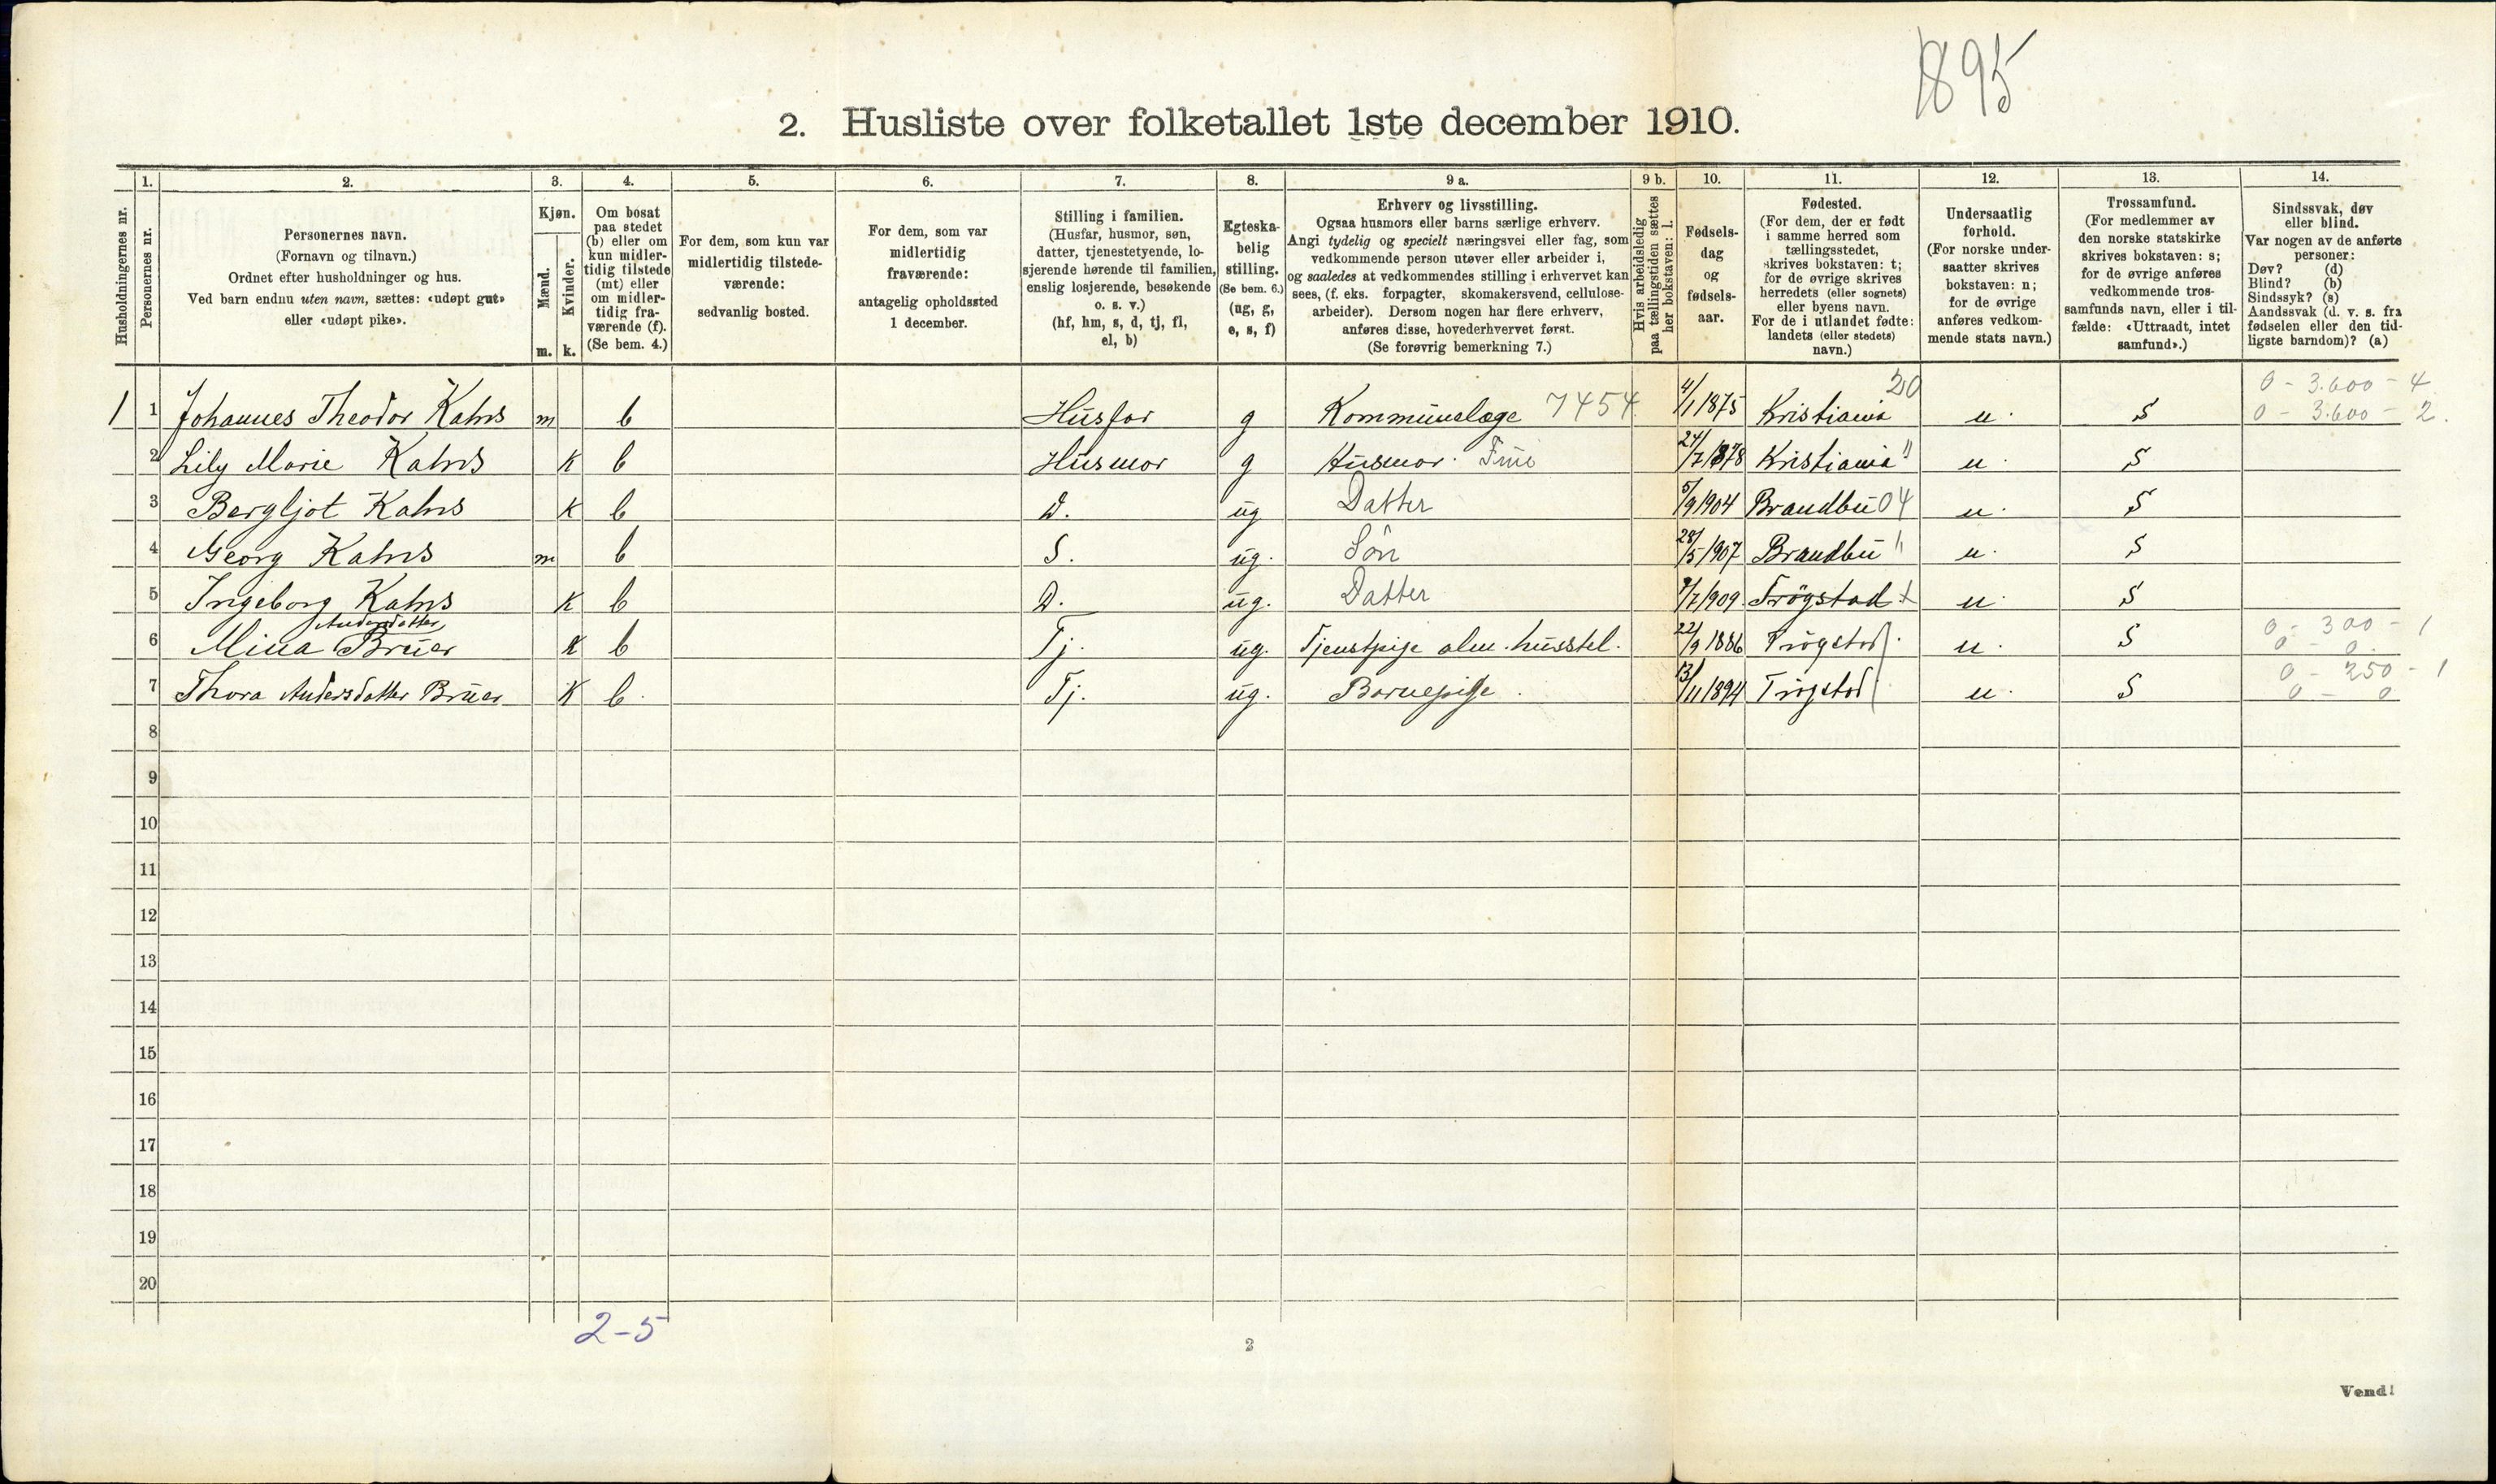 1895
2. Husliste over folketallet 1ste december 1910.
1. 2. 3. 4. 5. 6. 7. 8. 9 a. 9 b. 10. 11. 12. 13. 14.
Husholdningernes nr.
Personernes nr.
Personernes navn.
(Fornavn og tilnavn.)
Ordnet efter husholdninger og hus.
Ved barn endnu uten navn, sættes: «udøpt gut»
eller «udøpt pike».
Kjøn.
Mænd.
Kvinder.
m. k.
Om bosat
paa stedet
(b) eller om
kun midler-
tidig tilstede
(mt) eller
om midler-
tidig fra-
værende (f).
(Se bem. 4.)
For dem, som kun var
midlertidig tilstede-
værende:
sedvanlig bosted.
For dem, som var
midlertidig
fraværende:
antagelig opholdssted
1 december.
Stilling i familien.
(Husfar, husmor, søn,
datter, tjenestetyende, lo-
sjerende hørende til familien,
enslig losjerende, besøkende
o. s. v.)
(hf, hm, s, d, tj, fl,
el, b)
Egteska-
belig
stilling.
(Se bem. 6.)
(ug, g,
e, s, f)
Erhverv og livsstilling.
Ogsaa husmors eller barns særlige erhverv.
Angi tydelig og specielt næringsvei eller fag, som
vedkommende person utøver eller arbeider i,
og saaledes at vedkommendes stilling i erhvervet kan
sees, (f. eks. forpagter, skomakersvend, cellulose-
arbeider). Dersom nogen har flere erhverv,
anføres disse, hovederhvervet først.
(Se forøvrig bemerkning 7.)
Hvis arbeidsledig
paa tællingstiden sættes
her bokstaven: l.
Fødsels-
dag
og
fødsels-
aar.
Fødested.
(For dem, der er født
i samme herred som
tællingsstedet,
skrives bokstaven: t;
for de øvrige skrives
herredets (eller sognets)
eller byens navn.
For de i utlandet fødte:
landets (eller stedets)
navn.)
Undersaatlig
forhold.
(For norske under-
saatter skrives
bokstaven: n;
for de øvrige
anføres vedkom-
mende stats navn.)
Trossamfund.
(For medlemmer av
den norske statskirke
skrives bokstaven: s;
for de øvrige anføres
vedkommende tros-
samfunds navn, eller i til-
fælde: «Uttraadt, intet
samfund».)
Sindssvak, døv
eller blind.
Var nogen av de anførte
personer:
Døv? (d)
Blind? (b)
Sindssyk? (s)
Aandssvak (d. v. s. fra
fødselen eller den tid-
ligste barndom)? (a)
20 0 - 3.600 - 4
1 1 Johannes Theodor Kahrs m b Husfar g Kommunelæge 7454 4/1 1875 Kristiania n. S 0 - 3.600 - 2.
2 Lily Marie Kahrs K b Husmor g Husmor. Frue 24/7 1878 Kristiania " n. S
3 Bergljot Kahrs K b D. ug Datter 5/9 1904 Brandbu 04 n. S
4 Georg Kahrs m b S. ug. Sön 28/5 1907 Brandbu " n. S
5 Ingeborg Kahrs K b D. ug. Datter /7 1909. Trögstad t n. S
Andersdatter 0 - 300 - 1
6 Mina Bruer K b Tj. ug. Tjenstpige alm. husstel. 22/9 1886 Trögstad n. S 0 - 0.
0 - 250 - 1
7 Thora Andersdatter Bruer K b. Tj. ug. Barnepige. 13/11 1894 Trögstad n. S 0 - 0
8
9
10
11
12
13
14
15
16
17
18
19
20
2-5
2
Vend!